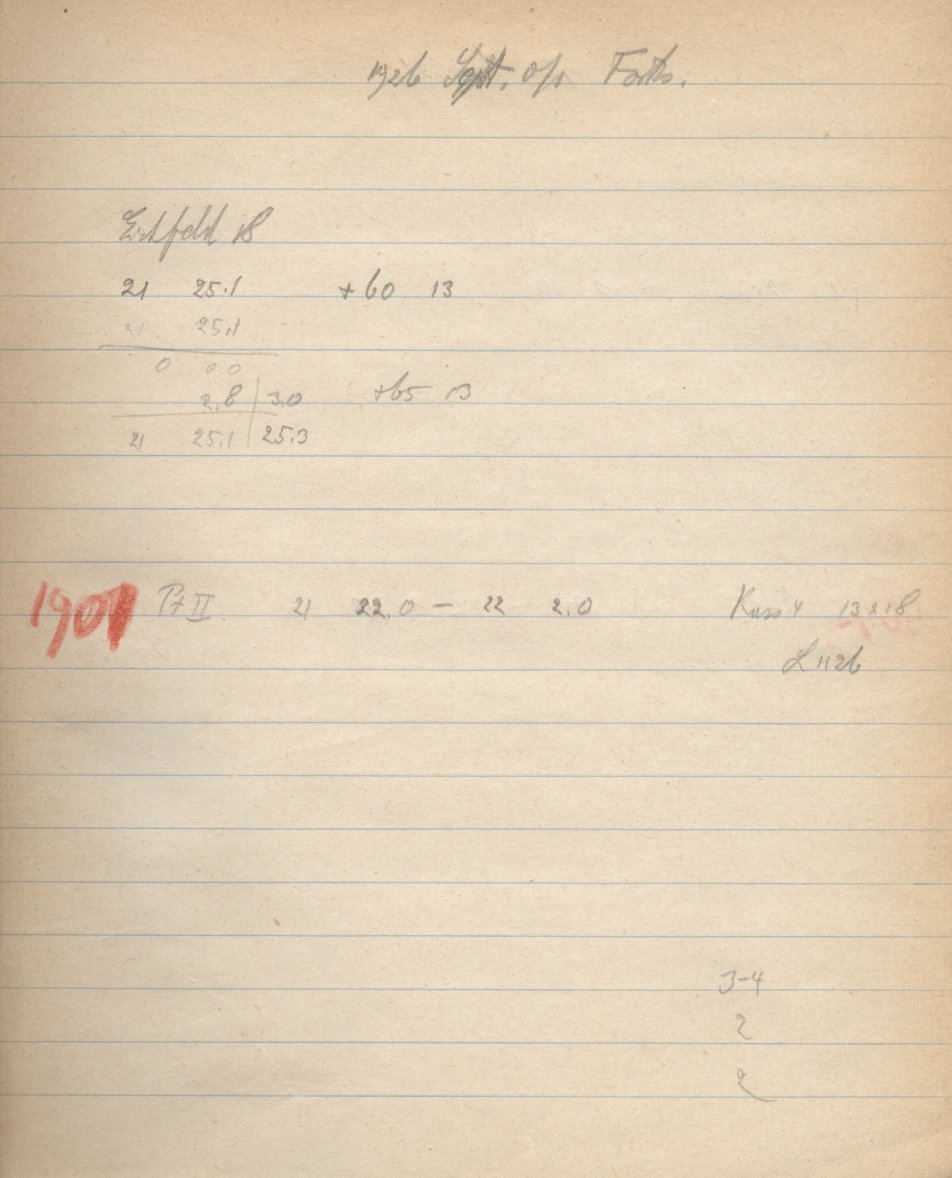 1926 Sept. 0/1 Faths.
Eichfeld 18
21 25.1 +60 13
21 25.1
0 00
2.8 3.0 +65 13
21 25.1 25.3
1901 Pt II 21 22.0 — 22 2.0 Kass 4 13x18
L 1126
3-4
2
2